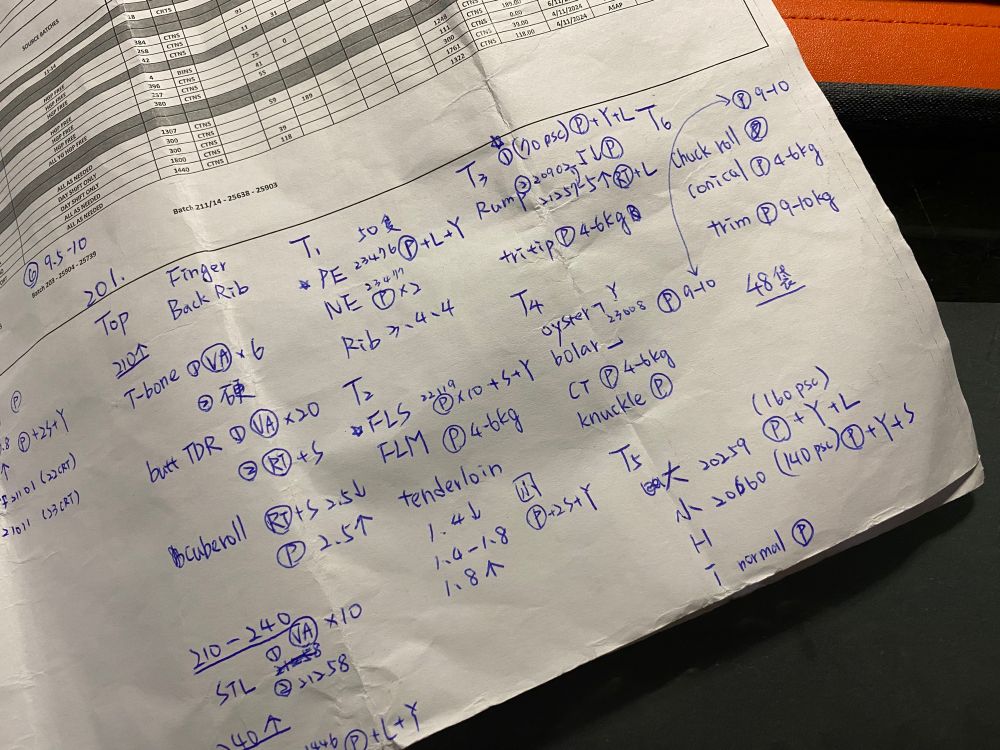 SOURCE BATCHES
18 CRTS 91
384 CTNS 11 31
258 CTNS
42 CTNS 25 0
HGP FREE 4 BINS 41
HGP FREE 396 CTNS 55
HGP FREE 237 CTNS
HGP FREE 380 CTNS
ALL YG HGP FREE 59 189
ALL AS NEEDED 1307 CTNS
DAY SHIFT ONLY 300 CTNS 39
DAY SHIFT ONLY 300 CTNS 118
ALL AS NEEDED 1800 CTNS
ALL AS NEEDED 1440 CTNS
1248 CTNS 189.00
111 CTNS 0.00 4/11/2024
300 CTNS 39.00 4/11/2024 ASAP
1761 CTNS 118.00
1322 CTNS
Batch 211/14 - 25638 - 25903
⑥ 9.5-10
Batch 203 - 25904 - 25739
201.
Top
210↑
T-bone ① VA × 6
② 硬
butt TDR ① VA × 20
② RT + S
cuberoll RT + S 2.5↓
P 2.5↑
210-240
STL ① VA × 10
② 21258
240↑
1446 P + L + Y
P
1.8 P + 2S + Y
↑
#21101 (22CRT)
21011 (23CRT)
Finger
Back Rib
T1 50隻
* PE 23476 P + L + Y
NE 23477 P × 2
Rib 3、4、4
T2
* FLS 22119 P × 10 + S + Y
FLM P 4-6kg
tenderloin
1.4↓
1.4-1.8 P + 2S + Y
1.8↑
T3
* ① (70 psc) P + Y + L
Rump ② 20902 5↓ P
21257 5↑ RT + L
tritip P 4-6kg
T4
oyster Y 23008 P 9-10
bolar
CT P 4-6kg
knuckle P
T5
大 20259 (160 psc) P + Y + L
小 20660 (140 psc) P + Y + S
H
T normal P
T6
P 9-10
chuck roll P
conical P 4-6kg
trim P 9-10kg
48袋